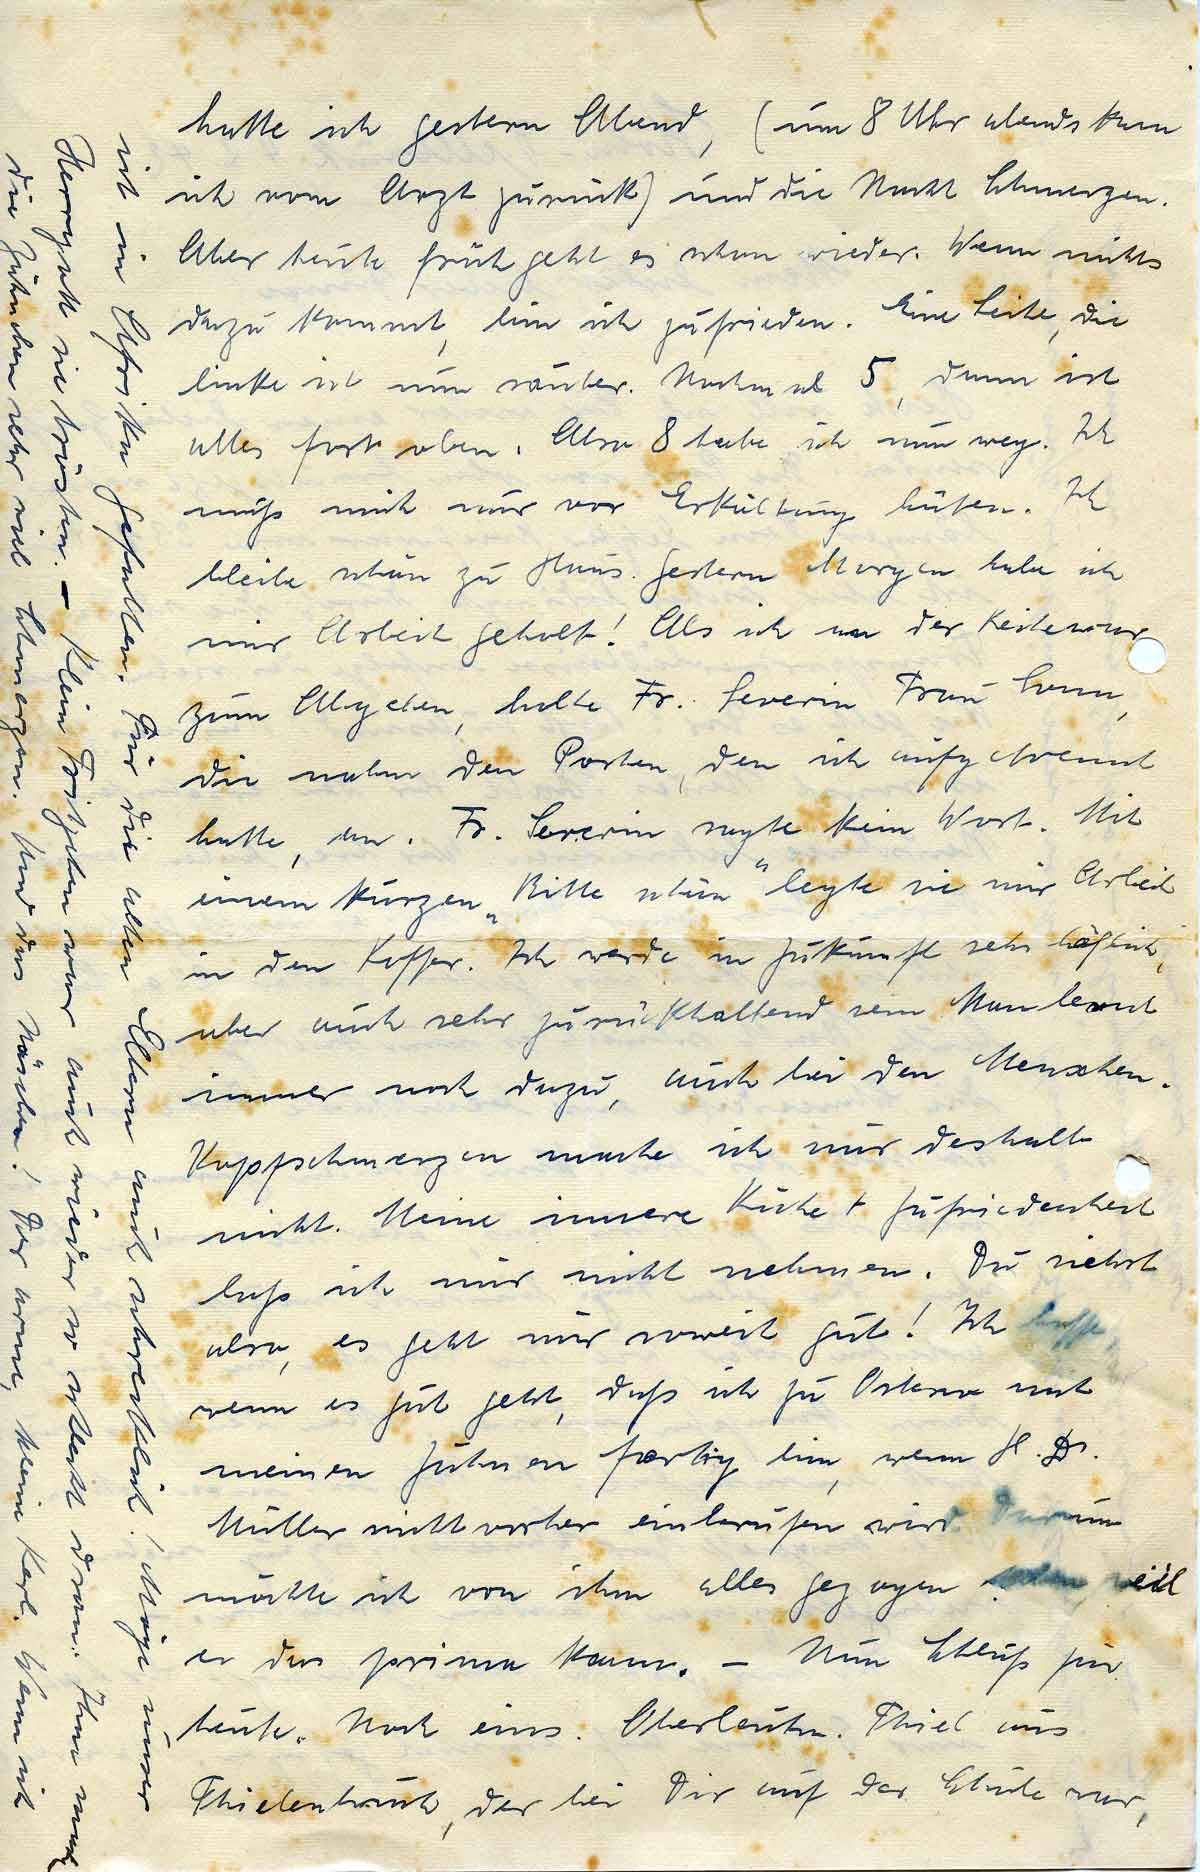 hatte ich gestern Abend, (um 8 Uhr abends kam
ich vom Arzt zurück) und die Nacht Schmerzen.
Aber heute früh geht es schon wieder. Wenn nichts
dazu kommt, bin ich zufrieden. Eine Seite, die
linke ist nun sauber. Nochmal 5, dann ist
alles fort oben. Also 8 habe ich nun weg. Ich
muß mich nur vor Erkältung hüten. Ich
bleibe schön zu Haus. Gestern Morgen habe ich
mir Arbeit geholt! Als ich an der Reihe war
zum Abgeben, holte Fr. Severin Frau
die nahm den Posten, den ich aufgetrennt
hatte, an. Fr. Severin sagte kein Wort. Mit
einem kurzen „Bitte schön“ legte sie mir Arbeit
in den Koffer. Ich werde in Zukunft sehr höflich,
aber auch sehr zurückhaltend sein. Man lernt
immer noch dazu, auch bei den Menschen.
Kopfschmerzen mache ich mir deshalb
nicht. Meine innere Ruhe + Zufriedenheit
laß ich mir nicht nehmen. Du siehst
also, es geht mir soweit gut! Ich hoffe,
wenn es gut geht, daß ich zu Ostern mit
meinen Zähnen fertig bin, wenn H. Dr.
Müller nicht vorher einberufen wird. Darum
möchte ich von ihm alles gezogen haben, weil
er das prima kann. – Nun Schluß für
heute. Noch eins. Oberleutn. Thiel aus
Thielenbruch, der bei Dir auf der Stube war,
ist in Afrika gefallen. Für die alten Eltern auch schrecklich! Möge unser
Herrgott sie trösten. – Klein Fritzchen war auch wieder so schlecht dran. Ihm machen
die Zähnchen sehr viel Schmerzen. Und das Näschen! Der arme, kleine Kerl. Wenn ich